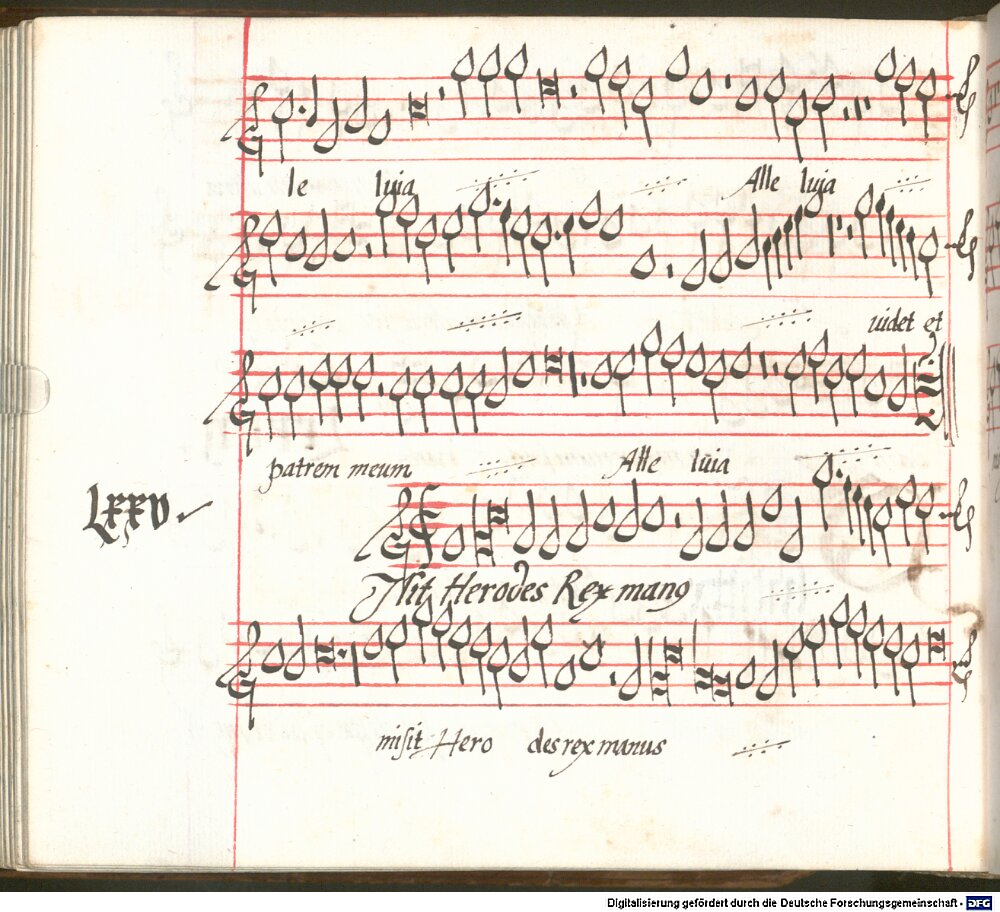 le luia Alle luia
uidet et
patrem meum Alle luia
LXXV
Misit Herodes Rex man9
misit Hero des rex manus
Digitalisierung gefördert durch die Deutsche Forschungsgemeinschaft - DFG